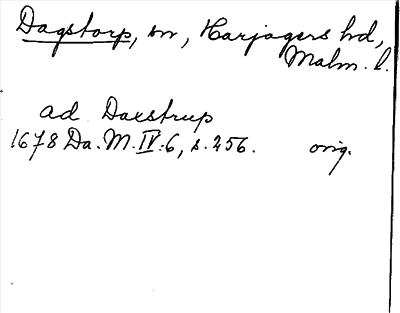 Dagstorp, sn, Harjagers hd,
Malm. l.
ad Daestrup
1678 Da. M. IV:6, s. 256. orig.